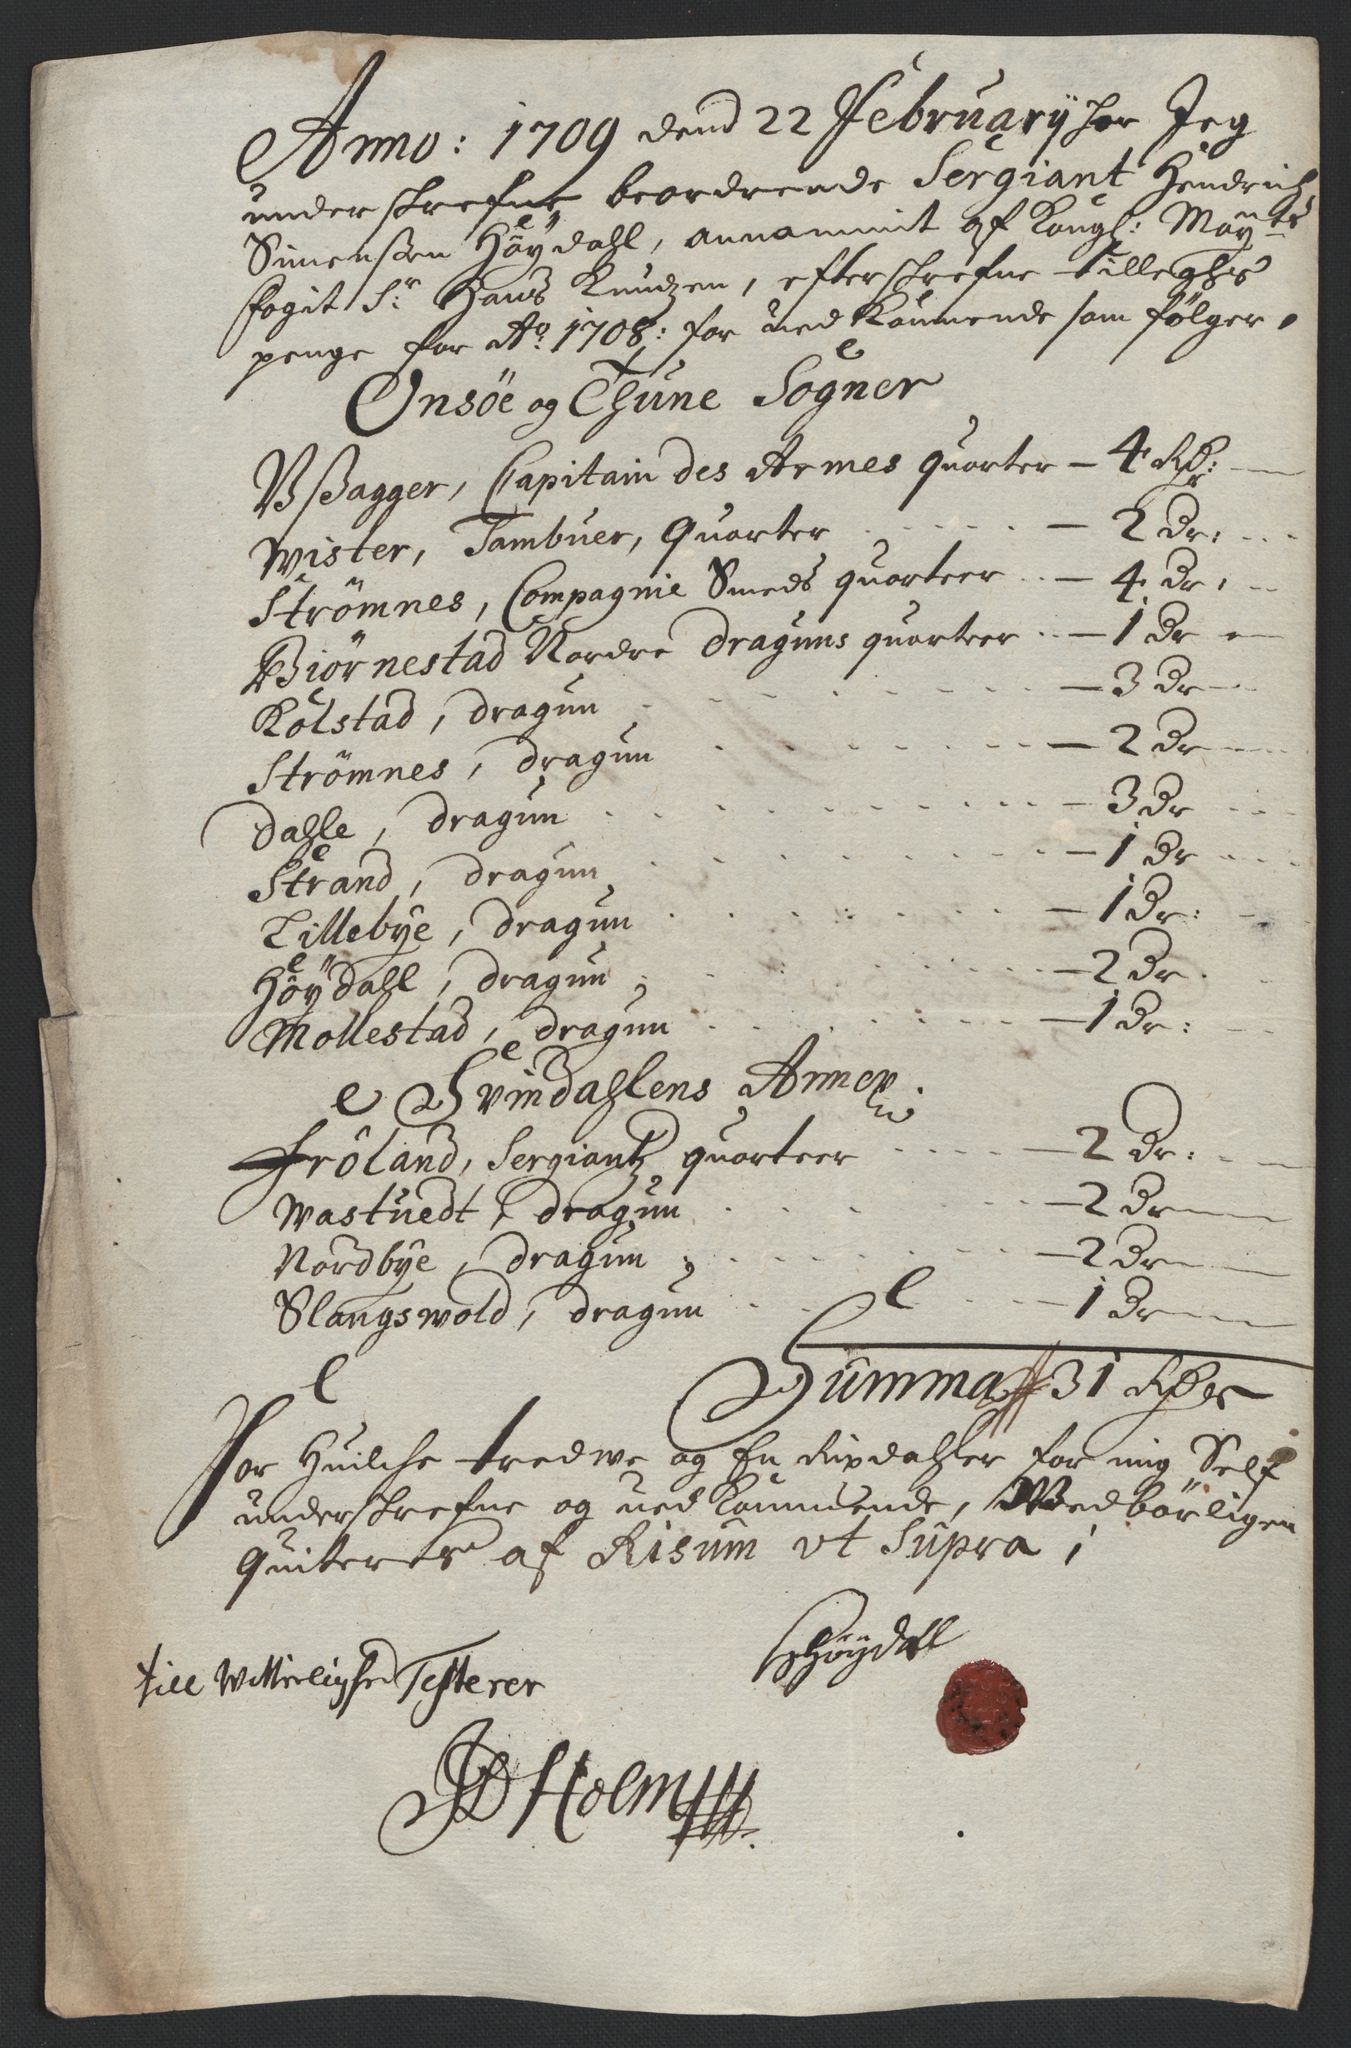 Anno: 1709 dend 22 February har Jeg
underskrefne beordrende Sergiant Hendrich
Simenssen Höÿdahl, annammit af Kongl: Maÿts
fogit Sr: Hans Knudzen, efterskrefne tilleghs
penge for Ao: 1708: for ved kommende som fölger,
Onsöe og Thune Sogner
Capitain des Armes quarter – 4 Rdr:
Wister, Tambuer, quarter – 2 Dr:
Strömnes, Compagnie Smeds quarteer – 4 Dr:
Biörnestad Nordre draguns quarteer – 1 Dr
Kolstad, dragun – 3 Dr
Strömnes, dragun – 2 Dr
Dahle, dragun – 3 Dr
Strand, dragun – 1 Dr
Lillebÿe, dragun – 1 Dr:
Höÿdahl, dragun – 2 Dr
Mollestad, dragun – 1 Dr:
Svindahlens Annex
Fröland, Sergiantz quarteer – 2 Dr:
Wastuedt, dragun – 2 Dr
Nordbÿe, dragun – 2 Dr
Slangswold, dragun – 1 Dr
Summa 31 Rdr
For huilche tredwe og En Rixdahler for mig Self
underskrefne og ved kommende, Wedbörligen
quiteres af Risum vt Supra,
Höÿdahl
till Witterlighed Testerer
JD Holm